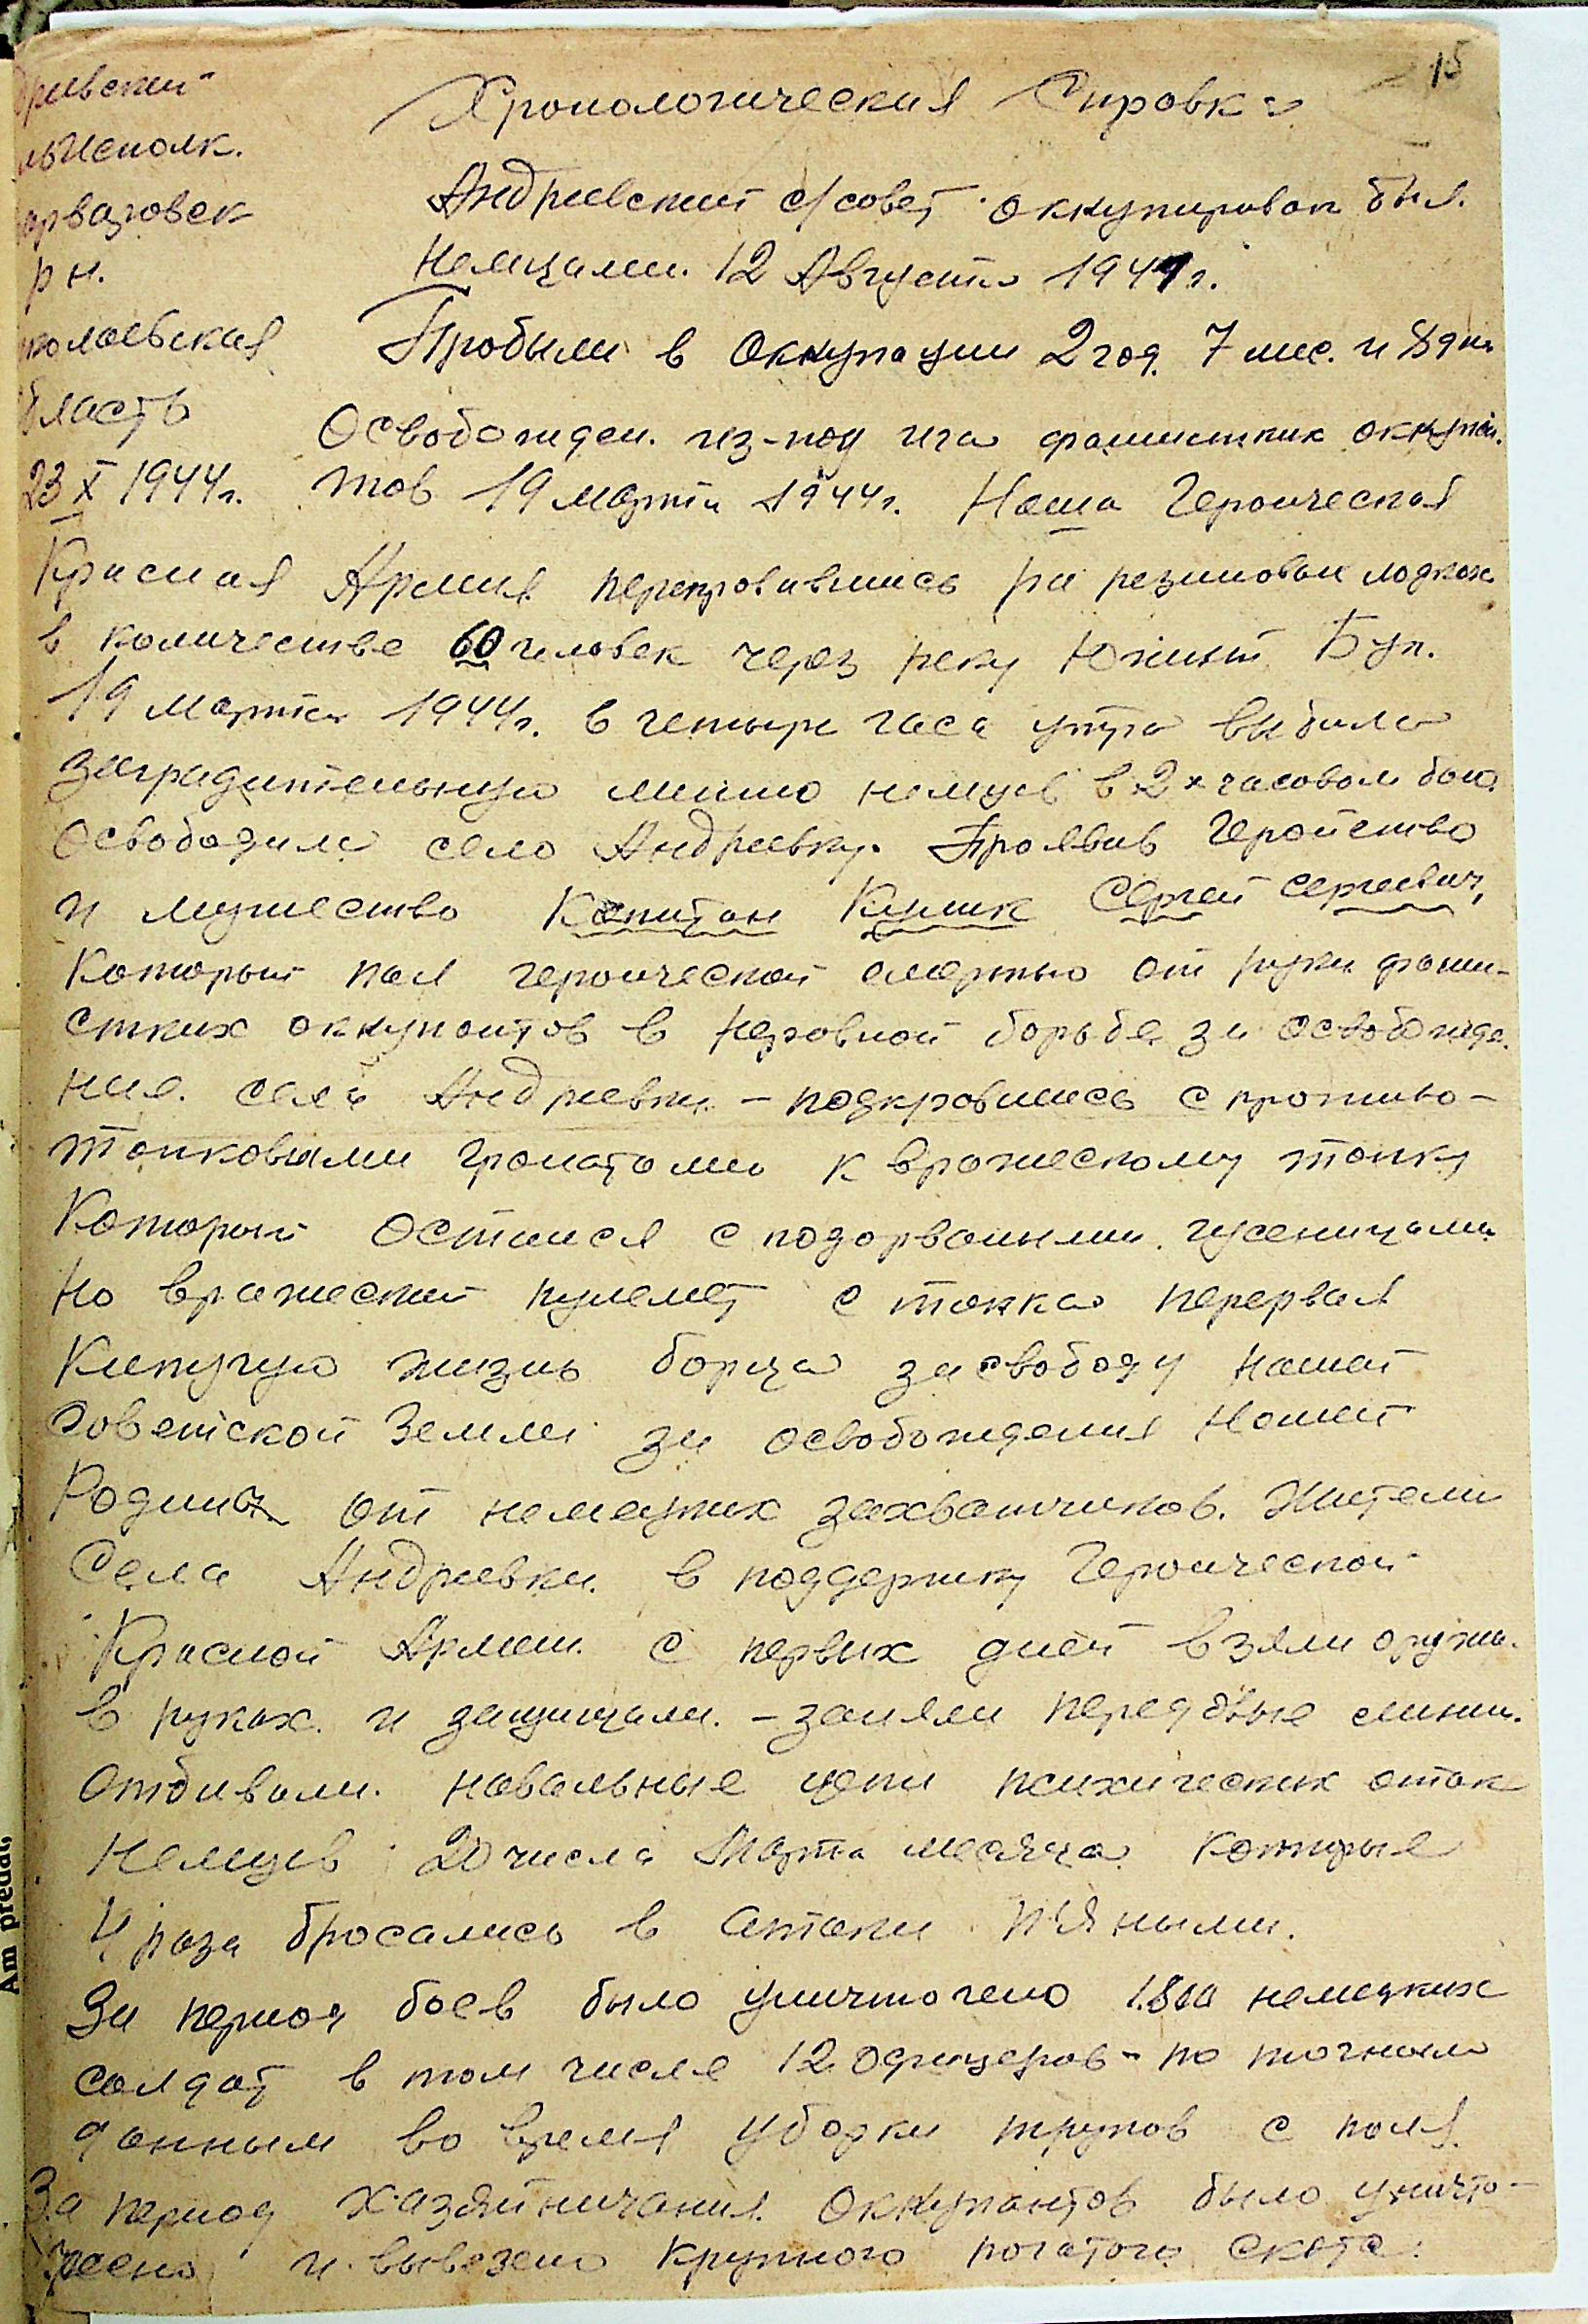 15
Хронологическия Справка
дривский
льИсполк.
арваровск
рн.
колаевская
бласть
23 X 1944г.
Андриевский с/совет оккупирован был
немцами. 12 Августа 1941г.
Пробыли в Оккупации 2 год. 7 мис. и 8 дня
Освобожден. из-под ига фашистких оккупан.
тов 19 марта 1944г. Наша Героическая
Красная Армия переправившись на резиновых лодках
в количестве 60 человек через реку Южный Буг.
19 марта 1944г. в четыри часа утра выбили
заградительную линию немцев в 2х часовом бою.
Освободили село Андриевку. Проявив Геройство
и мужество Капитан Кулик Сергей Сергиевич,
Который пал героической смертью от руки фаши-
стких оккупантов в неровной борьбе за освобожде.
ния. села Андриевки. - подкравшись с противо-
танковыми гранатами к вражескому танку
Который остался с подорванными гусеницами.
Но вражеский пулемет с танка перервал
Кипучую жизнь борца за свободу нашей
Советской Земли за освобождения Нашей
Родины от немецких захватчиков. Жители
Села Андриевки. в поддержку Героической
Красной Армии. с первых дней взяли оружи.
в руках. и защищали. - заняли передовые линии.
отбивали. навальные цепи психических атак
Немцев 20 числа Марта месяца Которые
4 раза бросались в атаки п'яными.
За период боев было уничтожено 1.800 немецких
солдат в том числе 12 офицеров - по точным
данным во время уборки трупов с поля.
За период хазяйничания Оккупантов было уничто-
жено и вывезено Крупного рогатого Скота.
Am predat,